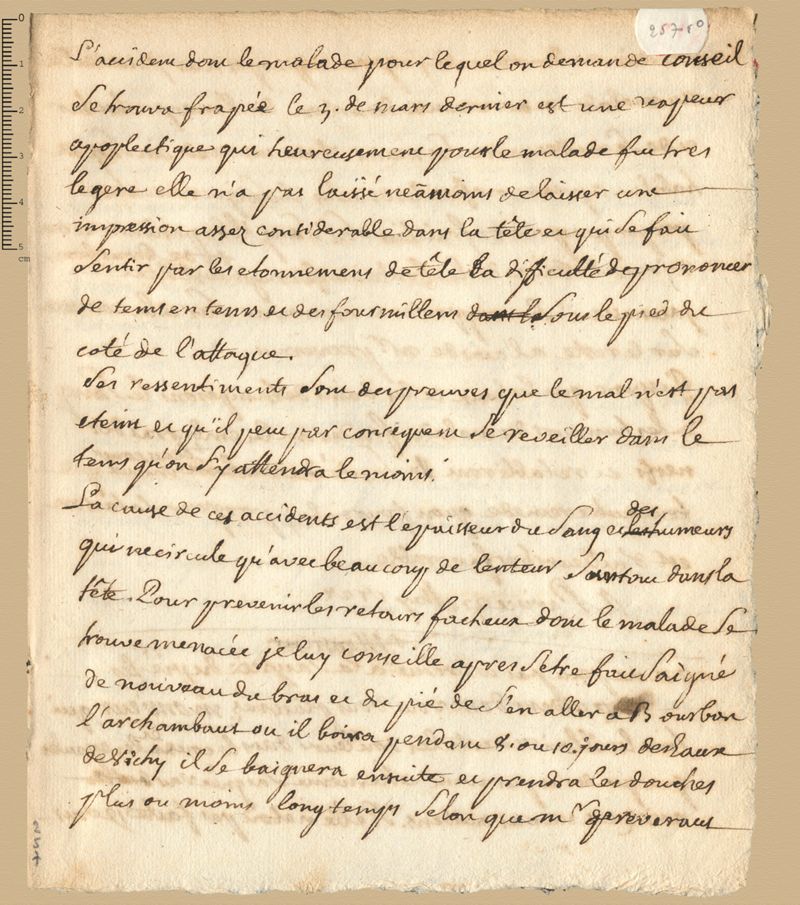 257 r°
L'accident dont le malade pour lequel on demande conseil
se trouva frapée le 3. de mars dernier est une vapeur
apoplectique qui heureusement pour le malade fut tres
legere elle n'a pas laissé neãmoins de laisser une
impression assez considerable dans la tête et qui se fait
sentir par les etonnemens de tête la difficulté de prononcer
de tems en tems et des fourmillens dans le sous le pied du
coté de l'attaque.
Ses ressentiments sont des preuves que le mal n'est pas
eteint et qu'il peut par consequent se reveiller dans le
tems qu'on s'y attendra le moins.
La cause de ces accidents est l'epaisseur du sang et les des humeurs
qui ne circule qu'avec beaucoup de lenteur surtout dans la
tête. Pour prevenir les retours facheux dont le malade se
trouve menacée je luy conseille apres s'etre fait saigné
de nouveau du bras et du pié de s'en aller a Bourbon
l'archambaut ou il boira pendant 8. ou 10. jours des eaux
de Vichy il se baignera ensuite et prendra les douches
plus ou moins long temps selon que mr
0 1 2 3 4 5
cm